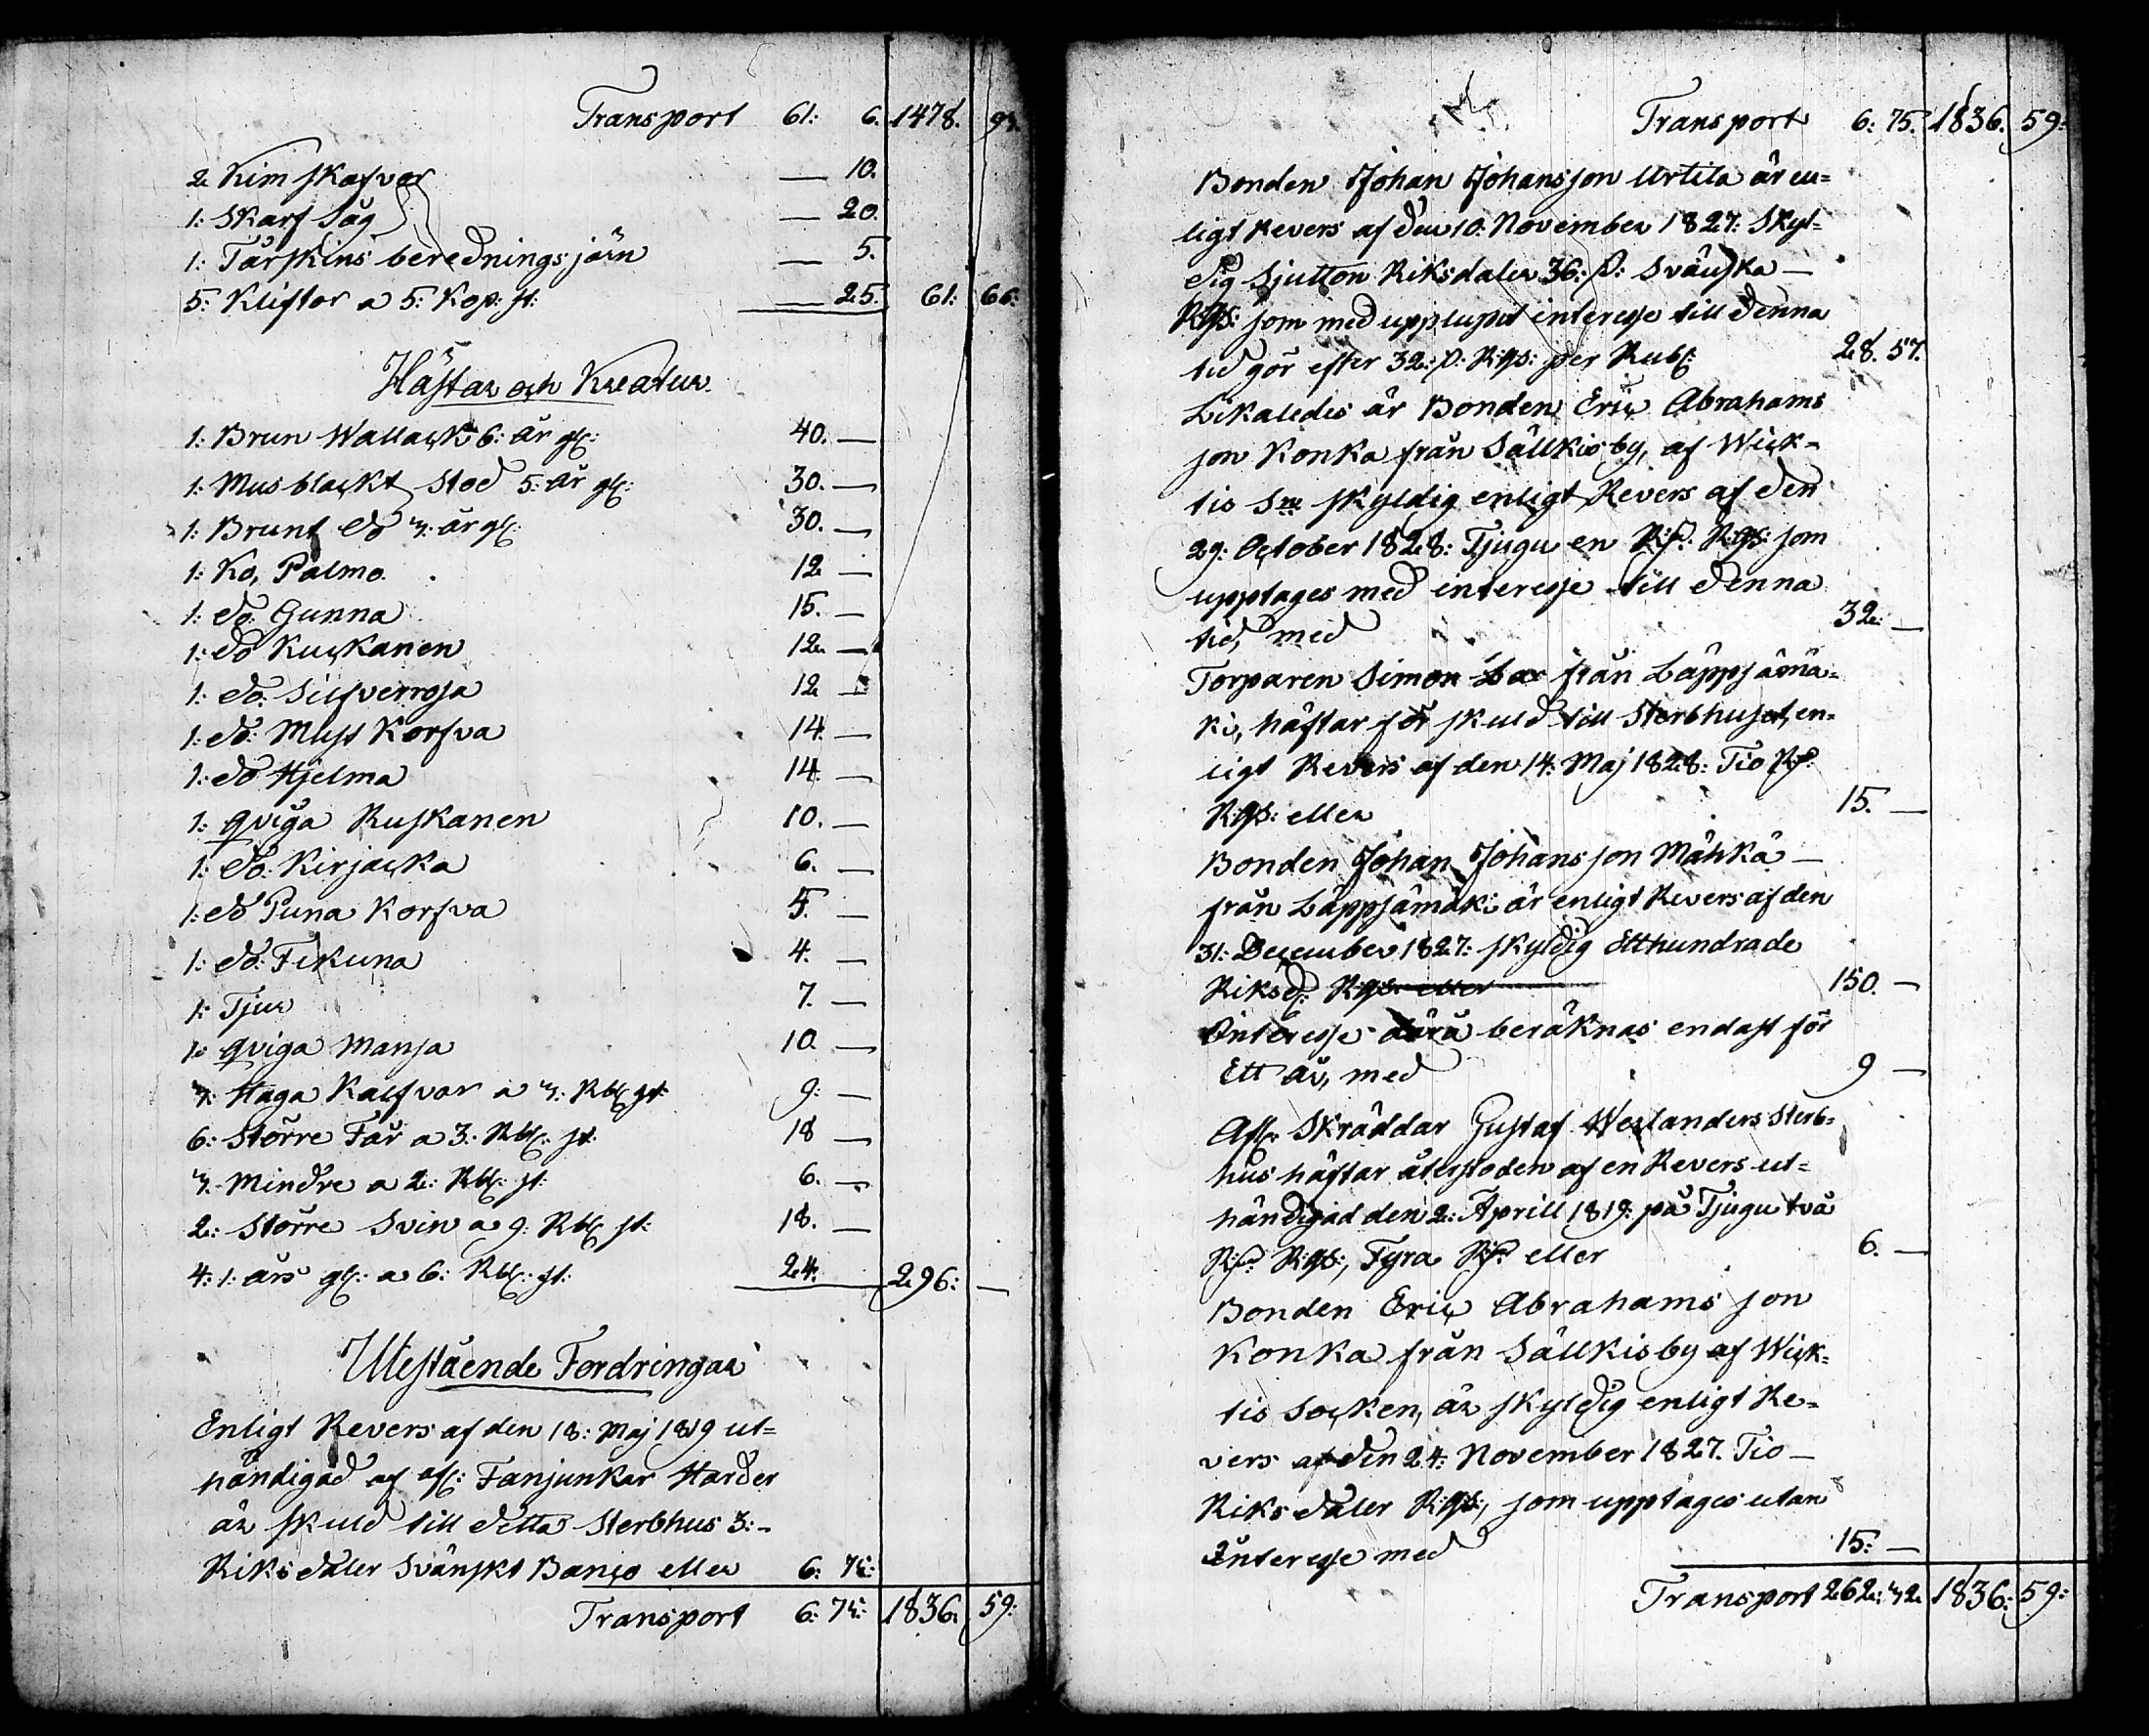 Transport 61: 6. 1478. 93.
2 Kimskafvar — 10.
1: Skarf Såg — 20.
1: Fårskins berednings järn — 5.
5: Kliftor a 5: Kop: st: — 25. 61: 66:
Hästar och Kreatur
1: Brun Wallack 6: år gl: 40. —
1: Musblackt Stod 5: år gl: 30. —
1: Brunt do 3: år gl: 30. —
1: Ko, Palmo. 12 —
1: do Gunna 15. —
1: do Kuckanen 12. —
1: do: Silfverrosa 12 —
1: do: Must Korfva 14. —
1: do Hjelma 14. —
1: qviga Ruskanen 10. —
1: do: Kirjacka 6. —
1: do Puna Korfva 5. —
1: do: Fikuna 4. —
1: Tjur 7. —
1: qviga Mansa 10. —
3: Haga Kalfvar a 3: Rbl: st: 9: —
6: Större Får a 3: Rbl: st: 18 —
3: Mindre a 2: Rbl: st: 6. —
2: Större Svin a 9: Rbl st: 18. —
4: 1: års gl: a 6: Rbl: st: 24. 296: —
Utestående Fordringar
Enligt Revers af den 18: Maj 1819 ut-
händigad af afl: Fanjunkar Harder
är skuld till detta Sterbhus 3:-
Riksdaler Svänskt Banco eller 6: 75:
Transport 6: 75: 1836. 59:
Transport 6: 75. 1836. 59:
Bonden Johan Johansson Urtila är en-
ligt Revers af den 10: November 1827: Skyl-
dig Sjutton Riksdaler 36: s: Svänska —
Rgs: som med upplupit interesse till denna
tid gör efter 32: s: Rgs: per Rubl: 28. 57.
Likaledes är Bonden Eric Abrahams
son Konka från Sällkis by, af Wick-
tis Sn skyldig enligt Revers af den
29: October 1828: Tjugu en Rd: Rgs: som
upptages med interesse till denna
tid, med 32: —
Torparen Simon från Läppjämä-
ki, häftar för skuld till Sterbhuset, en-
ligt Revers af den 14: Maj 1828: Tio Rd:
Rgs: eller 15. —
Bonden Johan Johansson Mähkä —
från Läppjämäki är enligt Revers af den
31: December 1827: skyldig Etthundrade
Riksd: Rgs eller 150. —
Interesse dära beräknas endast för
Ett år, med 9 —
Afl: Skräddar Gustaf Weslanders Sterb-
hus häftar återstoden af en Revers ut-
händigad den 2: Aprill 1819: på Tjugu två
Rd: Rgs:, Fyra Rd: eller 6. —
Bonden Eric Abrahams son
Konka från Sällkis by af Wick-
tis Socken, är skyldig enligt Re-
vers af den 24: November 1827. Tio —
Riksdaler Rgs:, som upptages utan
Interesse med 15: —
Transport 262: 32 1836: 59: